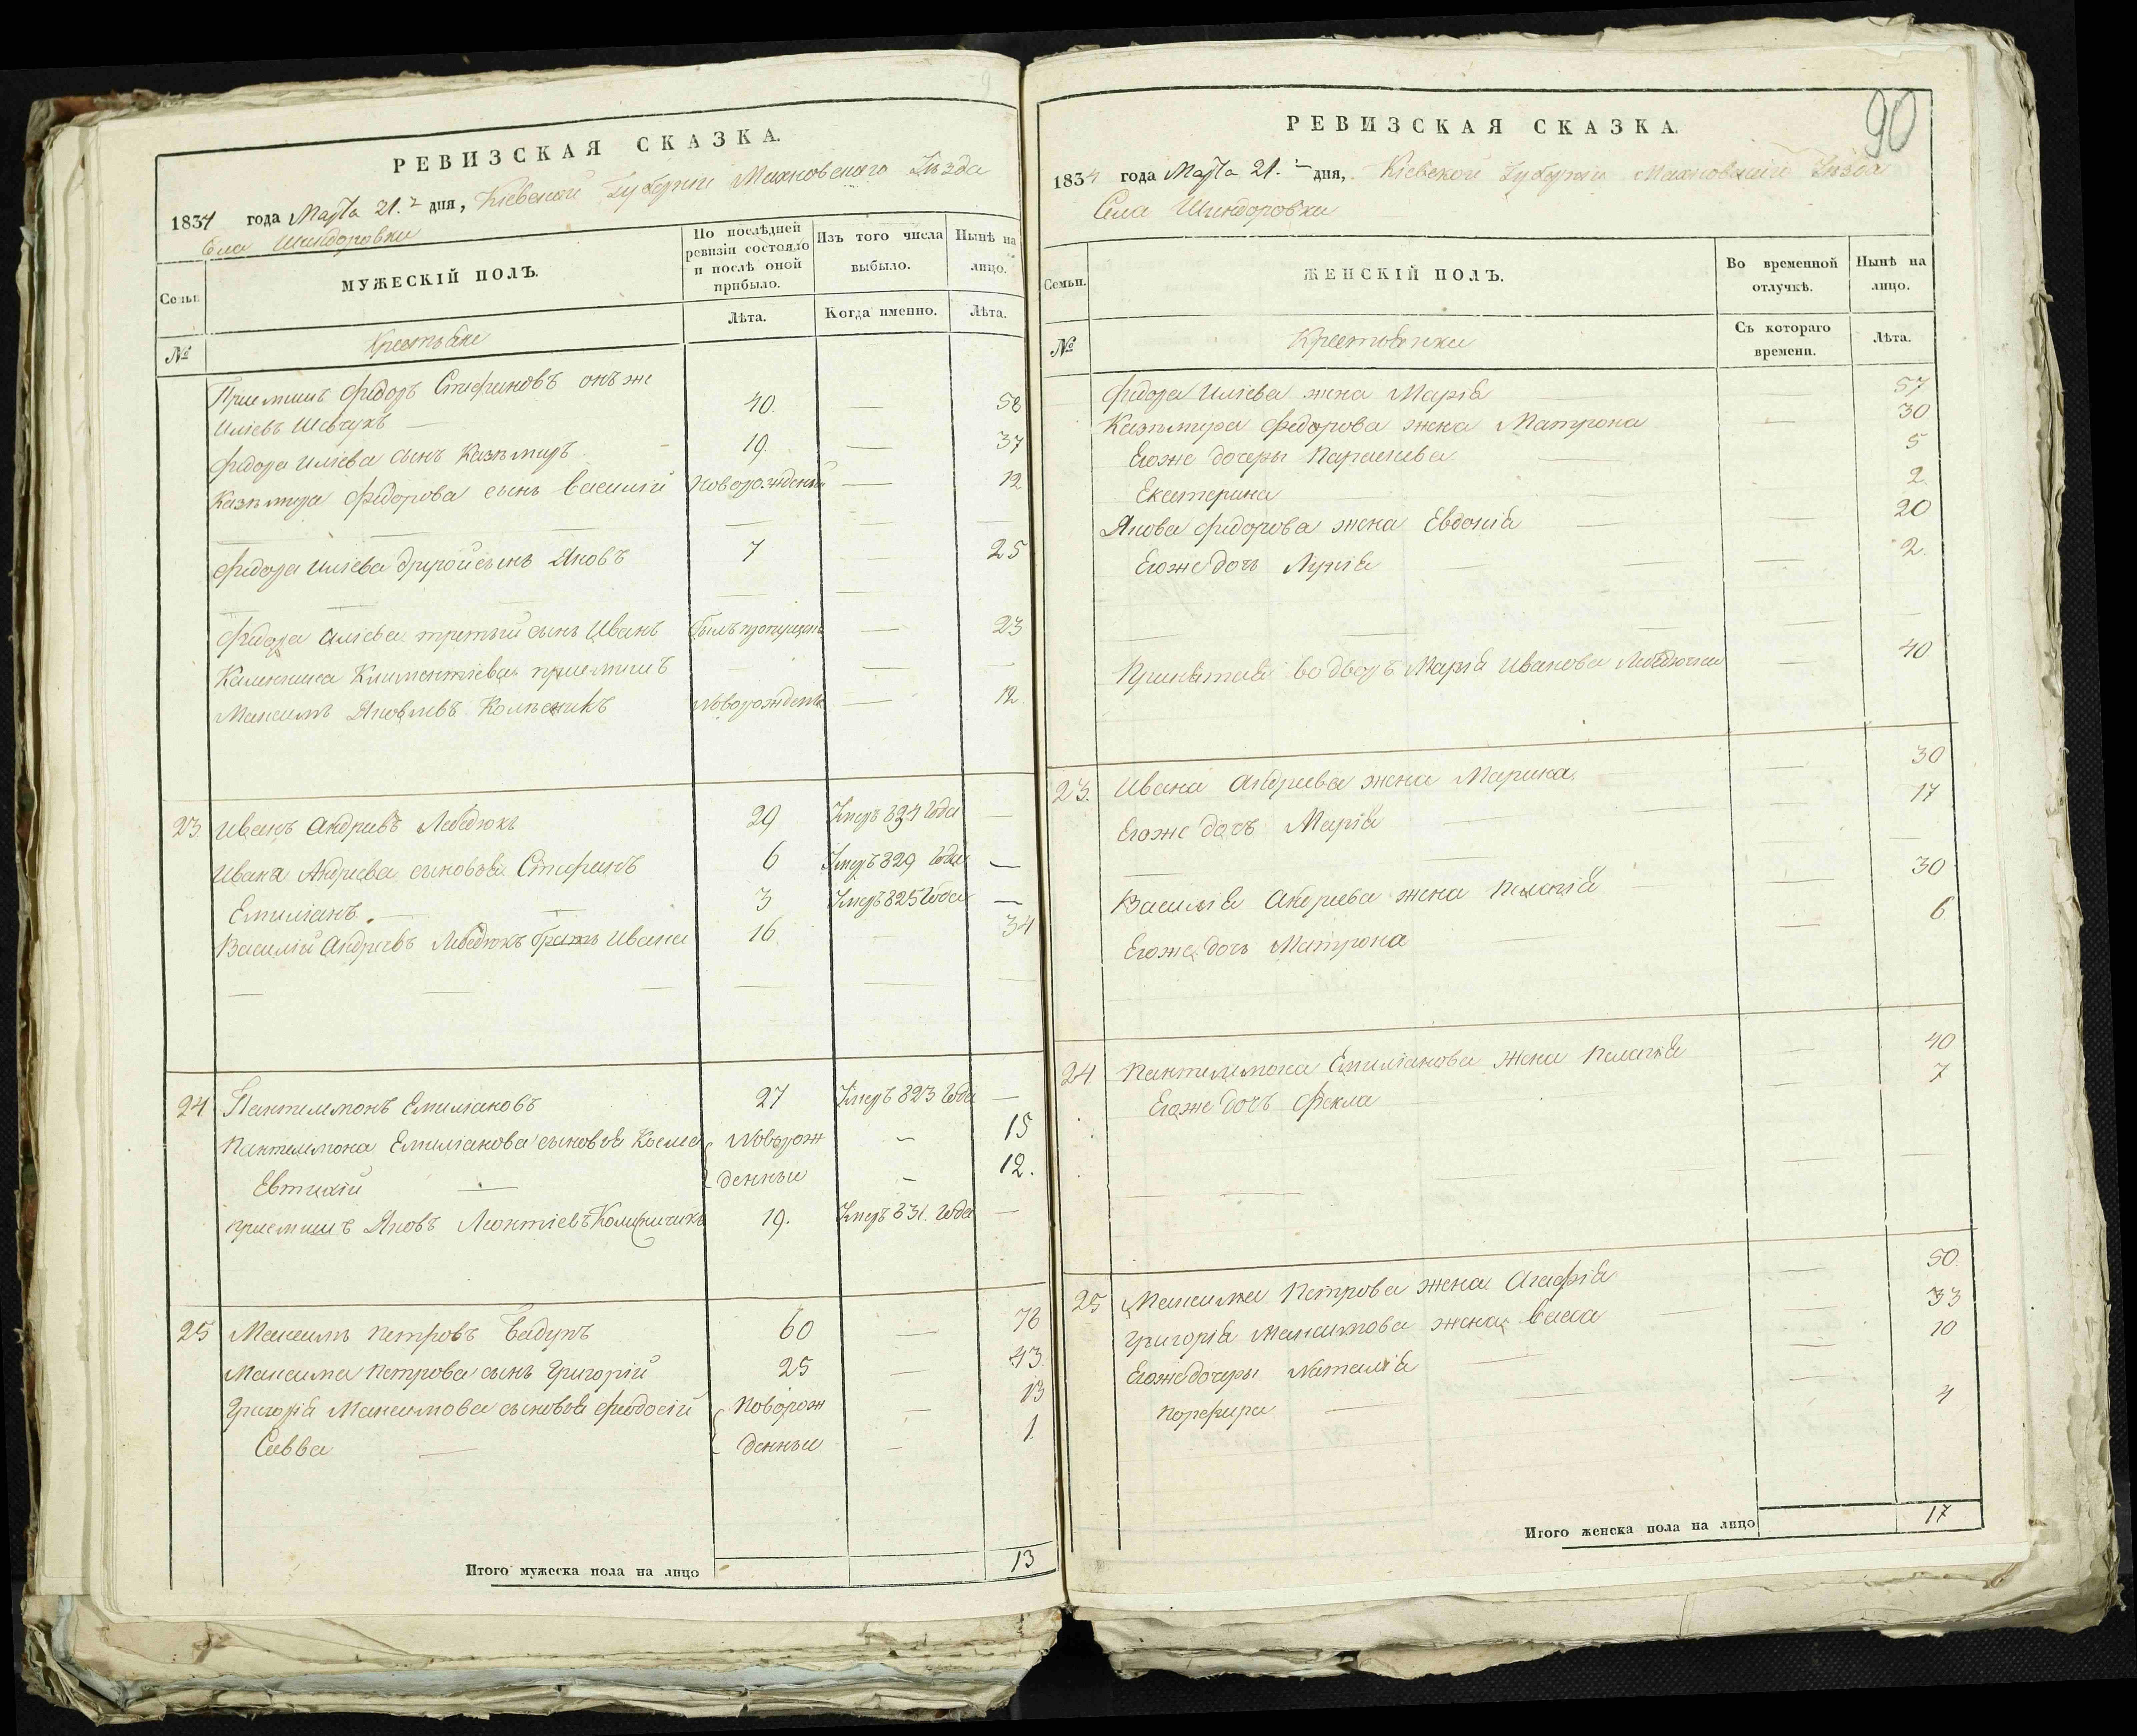 РЕВИЗСКАЯ СКАЗКА.
1834 года Марта 21.го дня, Кіевской Губерніи Махновскаго Уѣзда
Села Шиндоровки
Семьи.
МУЖЕСКІЙ ПОЛЪ.
По послѣдней ревизіи состояло и послѣ оной прибыло.
Изъ того числа выбыло.
Нынѣ на лицо.
№
Крестьяне
Лѣта.
Когда именно.
Лѣта.
Приемышъ Федоръ Стефановъ онъ же
Иліевъ Шевчукъ — 40. — 58
Федора Иліева сынъ Казьмиръ 19. — 37
Казьмира Федорова сынъ Василій Новорожденный — 12
Федора Иліева другой сынъ Яковъ 7 — 25
Федора Иліева третьій сынъ Иванъ былъ пропущенъ — 23
Калинника Климентіева приемышъ — — —
Максимъ Яковлевъ Новорожденъ — 12
23 Иванъ Андреевъ Лебедюкъ 29 Умеръ 834 Года —
Ивана Андреева сыновья Стефанъ 6 Умеръ 829 Года —
Емиліанъ — 3 Умеръ 825 Года —
Василій Андреевъ Лебедюкъ братъ Ивана 16 — 34
24 Пантелемонъ Емиліановъ 27 Умеръ 823 Года —
Пантелемона Емиліанова сыновья Косма Новорож — 15
Евтихій — денныи — 12.
приемышъ Яковъ Леонтіевъ 19. Умеръ 831. Года —
25 Максимъ Петровъ Бадунъ 60 — 78
Максима Петрова сынъ Григорій 25 — 43.
Григорія Максимова сыновья Феодосій Новорож — 13
Савва — денныи — 1.
Итого мужеска пола на лицо 13
90
РЕВИЗСКАЯ СКАЗКА.
1834 года Марта 21.го дня, Кіевской Губерніи Махновскаго Уѣзда
Села Шиндоровки
Семьи.
ЖЕНСКІЙ ПОЛЪ.
Во временной отлучкѣ.
Нынѣ на лицо.
№
Крестьянки
Съ котораго времени.
Лѣта.
Федора Иліева жена Марія — 57
Казьмира Федорова жена Матрона — 30
Егоже дочеры Параскева — 5
Екатерина — 2.
Якова Федорова жена Евдокія — 20
Егоже дочь Лукія — 2.
Принятая во дворъ Марія Иванова — 40
23. Ивана Андреева жена Марина. — 30
Егоже дочь Марія — 17
Василія Андреева жена Пелагія — 30
Егоже дочь Матрона — 6
24 Пантелемона Емиліанова жена Пелагія — 40
Егоже дочь Фекла — 7
25 Максима Петрова жена Агафія — 50.
Григорія Максимова жена Васса — 33
Егоже дочеры Наталія — 10
Порфира — 4
Итого женска пола на лицо 17